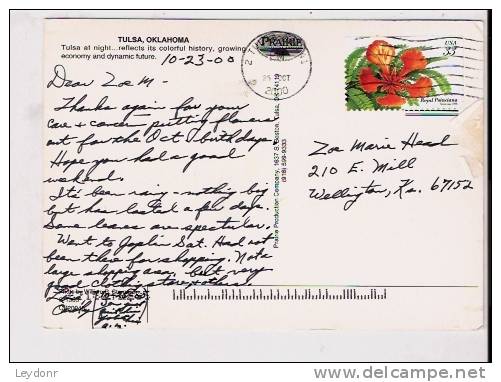 TULSA, OKLAHOMA
Tulsa at night...reflects its colorful history, growing
economy and dynamic future.
10-23-00
PRAIRIE
OCT
2000
USA
33
Royal Poinciana
Dear Zoe M-
Thanks again for your
care & concern putting flowers
out for the Oct birthdays.
Hope you had a good
weekend.
It's been rainy - nothing big
but has lasted a few days.
Some leaves are spectacular.
Went to Joplin Sat. Had not
been there for shopping. Not a
large shopping area, but very
good clothing stores
Love
Zoe Marie Head
210 E. Mill
Wellington, Ks. 67152
Prairie Production Company, 1637 S. Boston, Tulsa, OK 74119
(918) 599-9333
Leydonr
http://www.delcampe.net